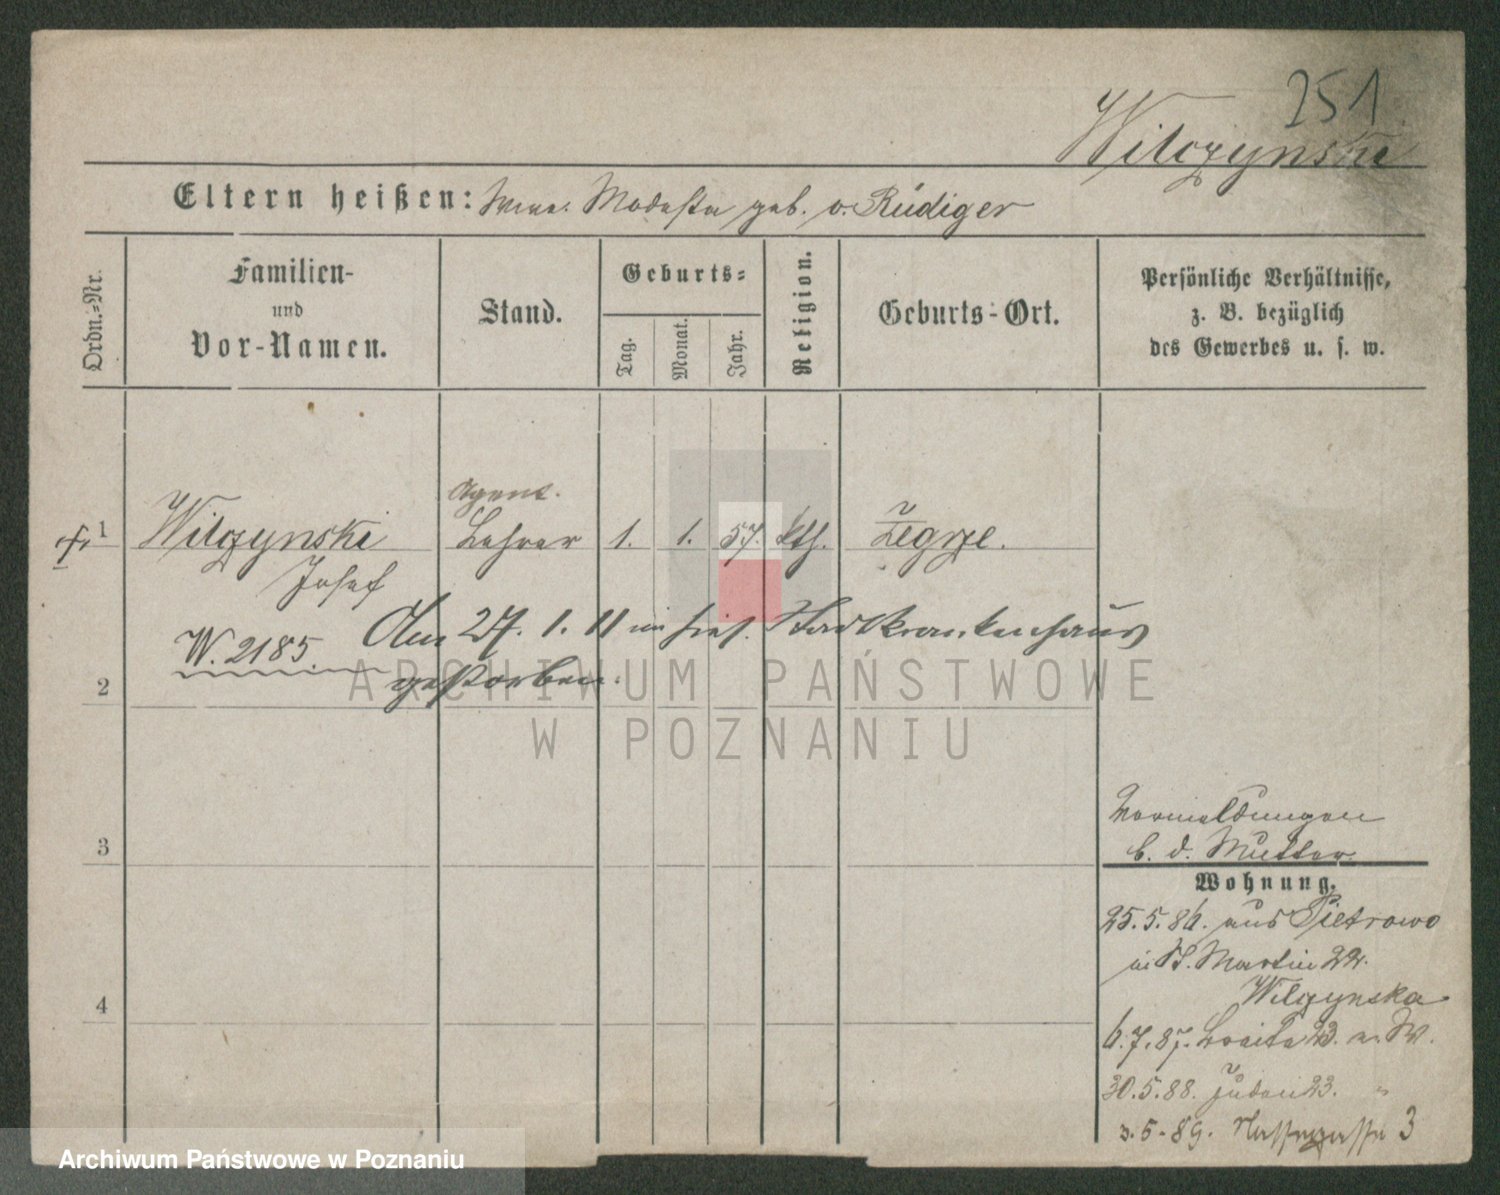 251
Wilczynski
Eltern heißen: Wwe. Modesta geb. v. Rüdiger
Ordn.=Nr.
Familien-
und
Vor-Namen.
Stand.
Geburts=
Tag.
Monat.
Jahr.
Religion.
Geburts-Ort.
Persönliche Verhältnisse,
z. B. bezüglich
des Gewerbes u. s. w.
Agent.
1 Wilczynski Lehrer 1. 1. 57. kth. Żegrze.
Josef
Am 27. 1. 11 im hies. Stadtkrankenhaus
W. 2185.
gestorben.
2
3
4
Vormeldungen
b. d. Mutter
Wohnung.
25.5.86. aus Pietrowo
in St. Martin 22.
Wilczynska
6.7.87. Breite 23. W.
30.5.88. Juden 23. "
3.5.89. 3
ARCHIWUM PAŃSTWOWE
W POZNANIU
Archiwum Państwowe w Poznaniu